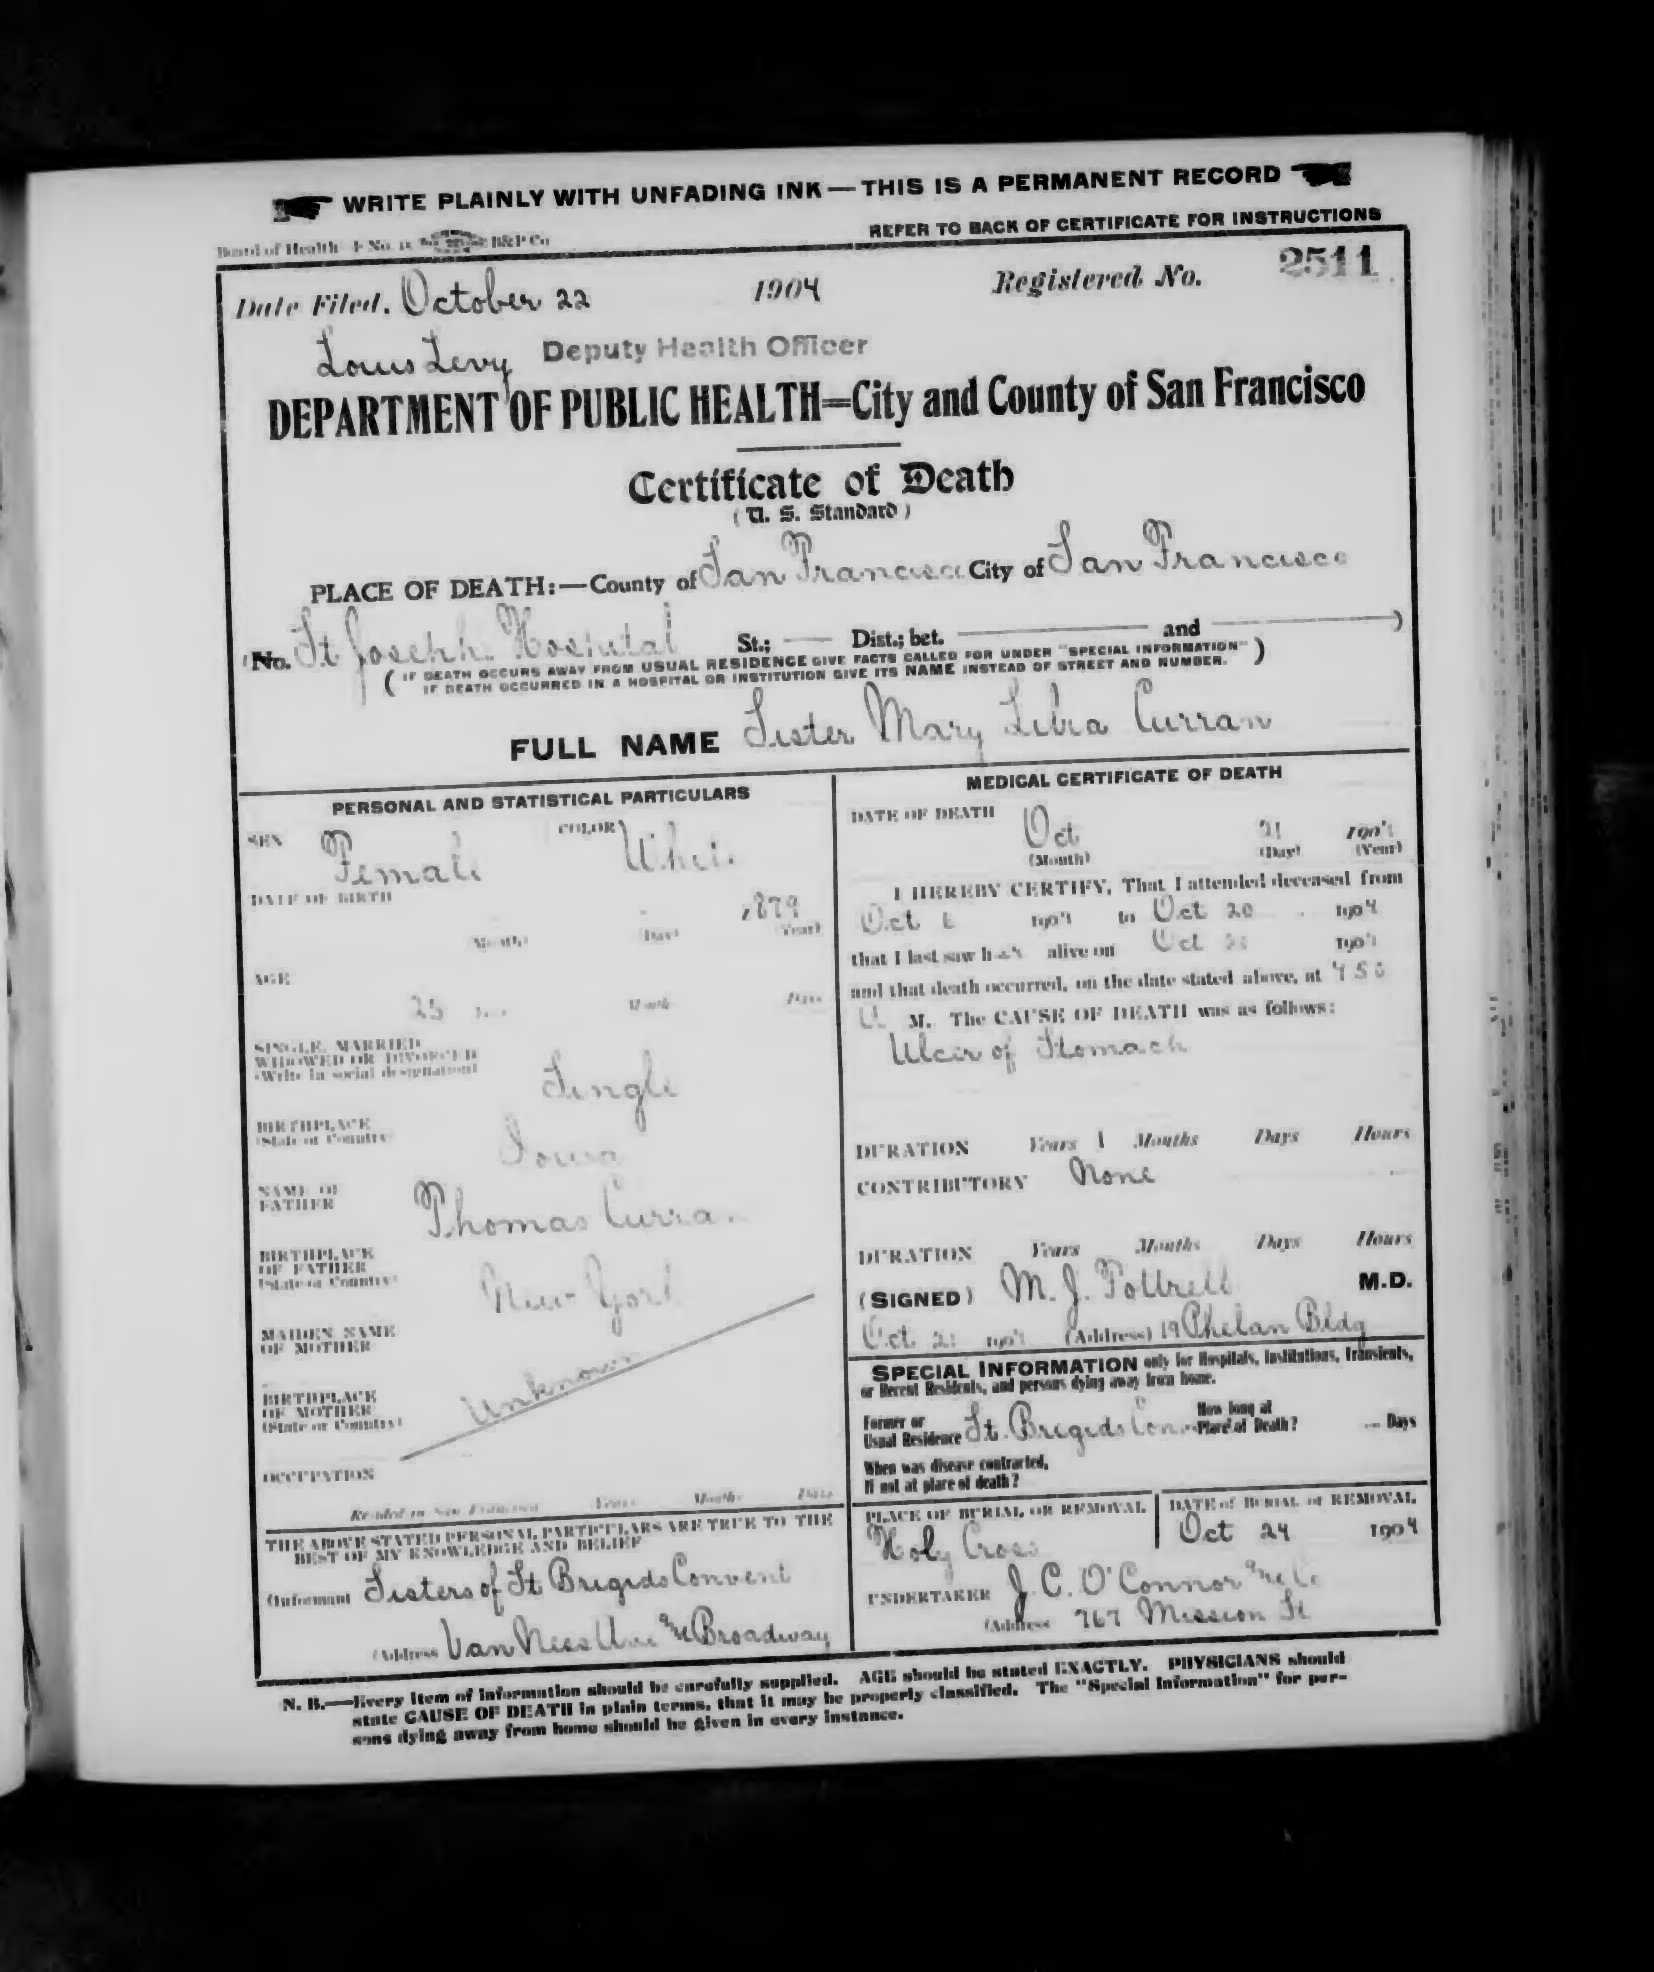 WRITE PLAINLY WITH UNFADING INK — THIS IS A PERMANENT RECORD
REFER TO BACK OF CERTIFICATE FOR INSTRUCTIONS
Board of Health F No. B&P Co
Date Filed, October 22 1904 Registered No. 2511
Louis Levy Deputy Health Officer
DEPARTMENT OF PUBLIC HEALTH=City and County of San Francisco
Certificate of Death
( U. S. Standard )
PLACE OF DEATH:—County of San Francisco City of San Francisco
(No. St Josephs Hospital St.; — Dist.; bet. — and — )
( IF DEATH OCCURS AWAY FROM USUAL RESIDENCE GIVE FACTS CALLED FOR UNDER "SPECIAL INFORMATION" )
IF DEATH OCCURRED IN A HOSPITAL OR INSTITUTION GIVE ITS NAME INSTEAD OF STREET AND NUMBER.
FULL NAME Sister Mary Curran
PERSONAL AND STATISTICAL PARTICULARS
SEX Female COLOR White
DATE OF BIRTH 1879
(Month) (Day) (Year)
AGE
25 Years Months Days
SINGLE, MARRIED
WIDOWED OR DIVORCED
(Write in social designation)
Single
BIRTHPLACE
(State or Country)
Iowa
NAME OF
FATHER
Thomas Curran
BIRTHPLACE
OF FATHER
(State or Country)
New York
MAIDEN NAME
OF MOTHER
Unknown
BIRTHPLACE
OF MOTHER
(State or Country)
OCCUPATION
Resided in San Francisco Years Months Days
THE ABOVE STATED PERSONAL PARTICULARS ARE TRUE TO THE
BEST OF MY KNOWLEDGE AND BELIEF
(Informant Sisters of St Brigids Convent
(Address Van Ness Ave and Broadway
MEDICAL CERTIFICATE OF DEATH
DATE OF DEATH
Oct 21 1904
(Month) (Day) (Year)
I HEREBY CERTIFY, That I attended deceased from
Oct 1904 to Oct 20 1904
that I last saw her alive on Oct 1904
and that death occurred, on the date stated above, at 450
A M. The CAUSE OF DEATH was as follows:
Ulcer of Stomach
DURATION Years 1 Months Days Hours
CONTRIBUTORY None
DURATION Years Months Days Hours
(SIGNED) M. J. Pottrell M.D.
Oct 21 1904 (Address) 19 Phelan Bldg
SPECIAL INFORMATION only for Hospitals, Institutions, Transients,
or Recent Residents, and persons dying away from home.
Former or
Usual Residence St. Brigids Conv
How long at
Place of Death? Days
When was disease contracted,
If not at place of death?
PLACE OF BURIAL OR REMOVAL
Holy Cross
DATE of BURIAL or REMOVAL
Oct 24 1904
UNDERTAKER J. C. O'Connor and Co
(Address 767 Mission St
N. B.—Every item of information should be carefully supplied. AGE should be stated EXACTLY. PHYSICIANS should
state CAUSE OF DEATH in plain terms, that it may be properly classified. The "Special Information" for per-
sons dying away from home should be given in every instance.